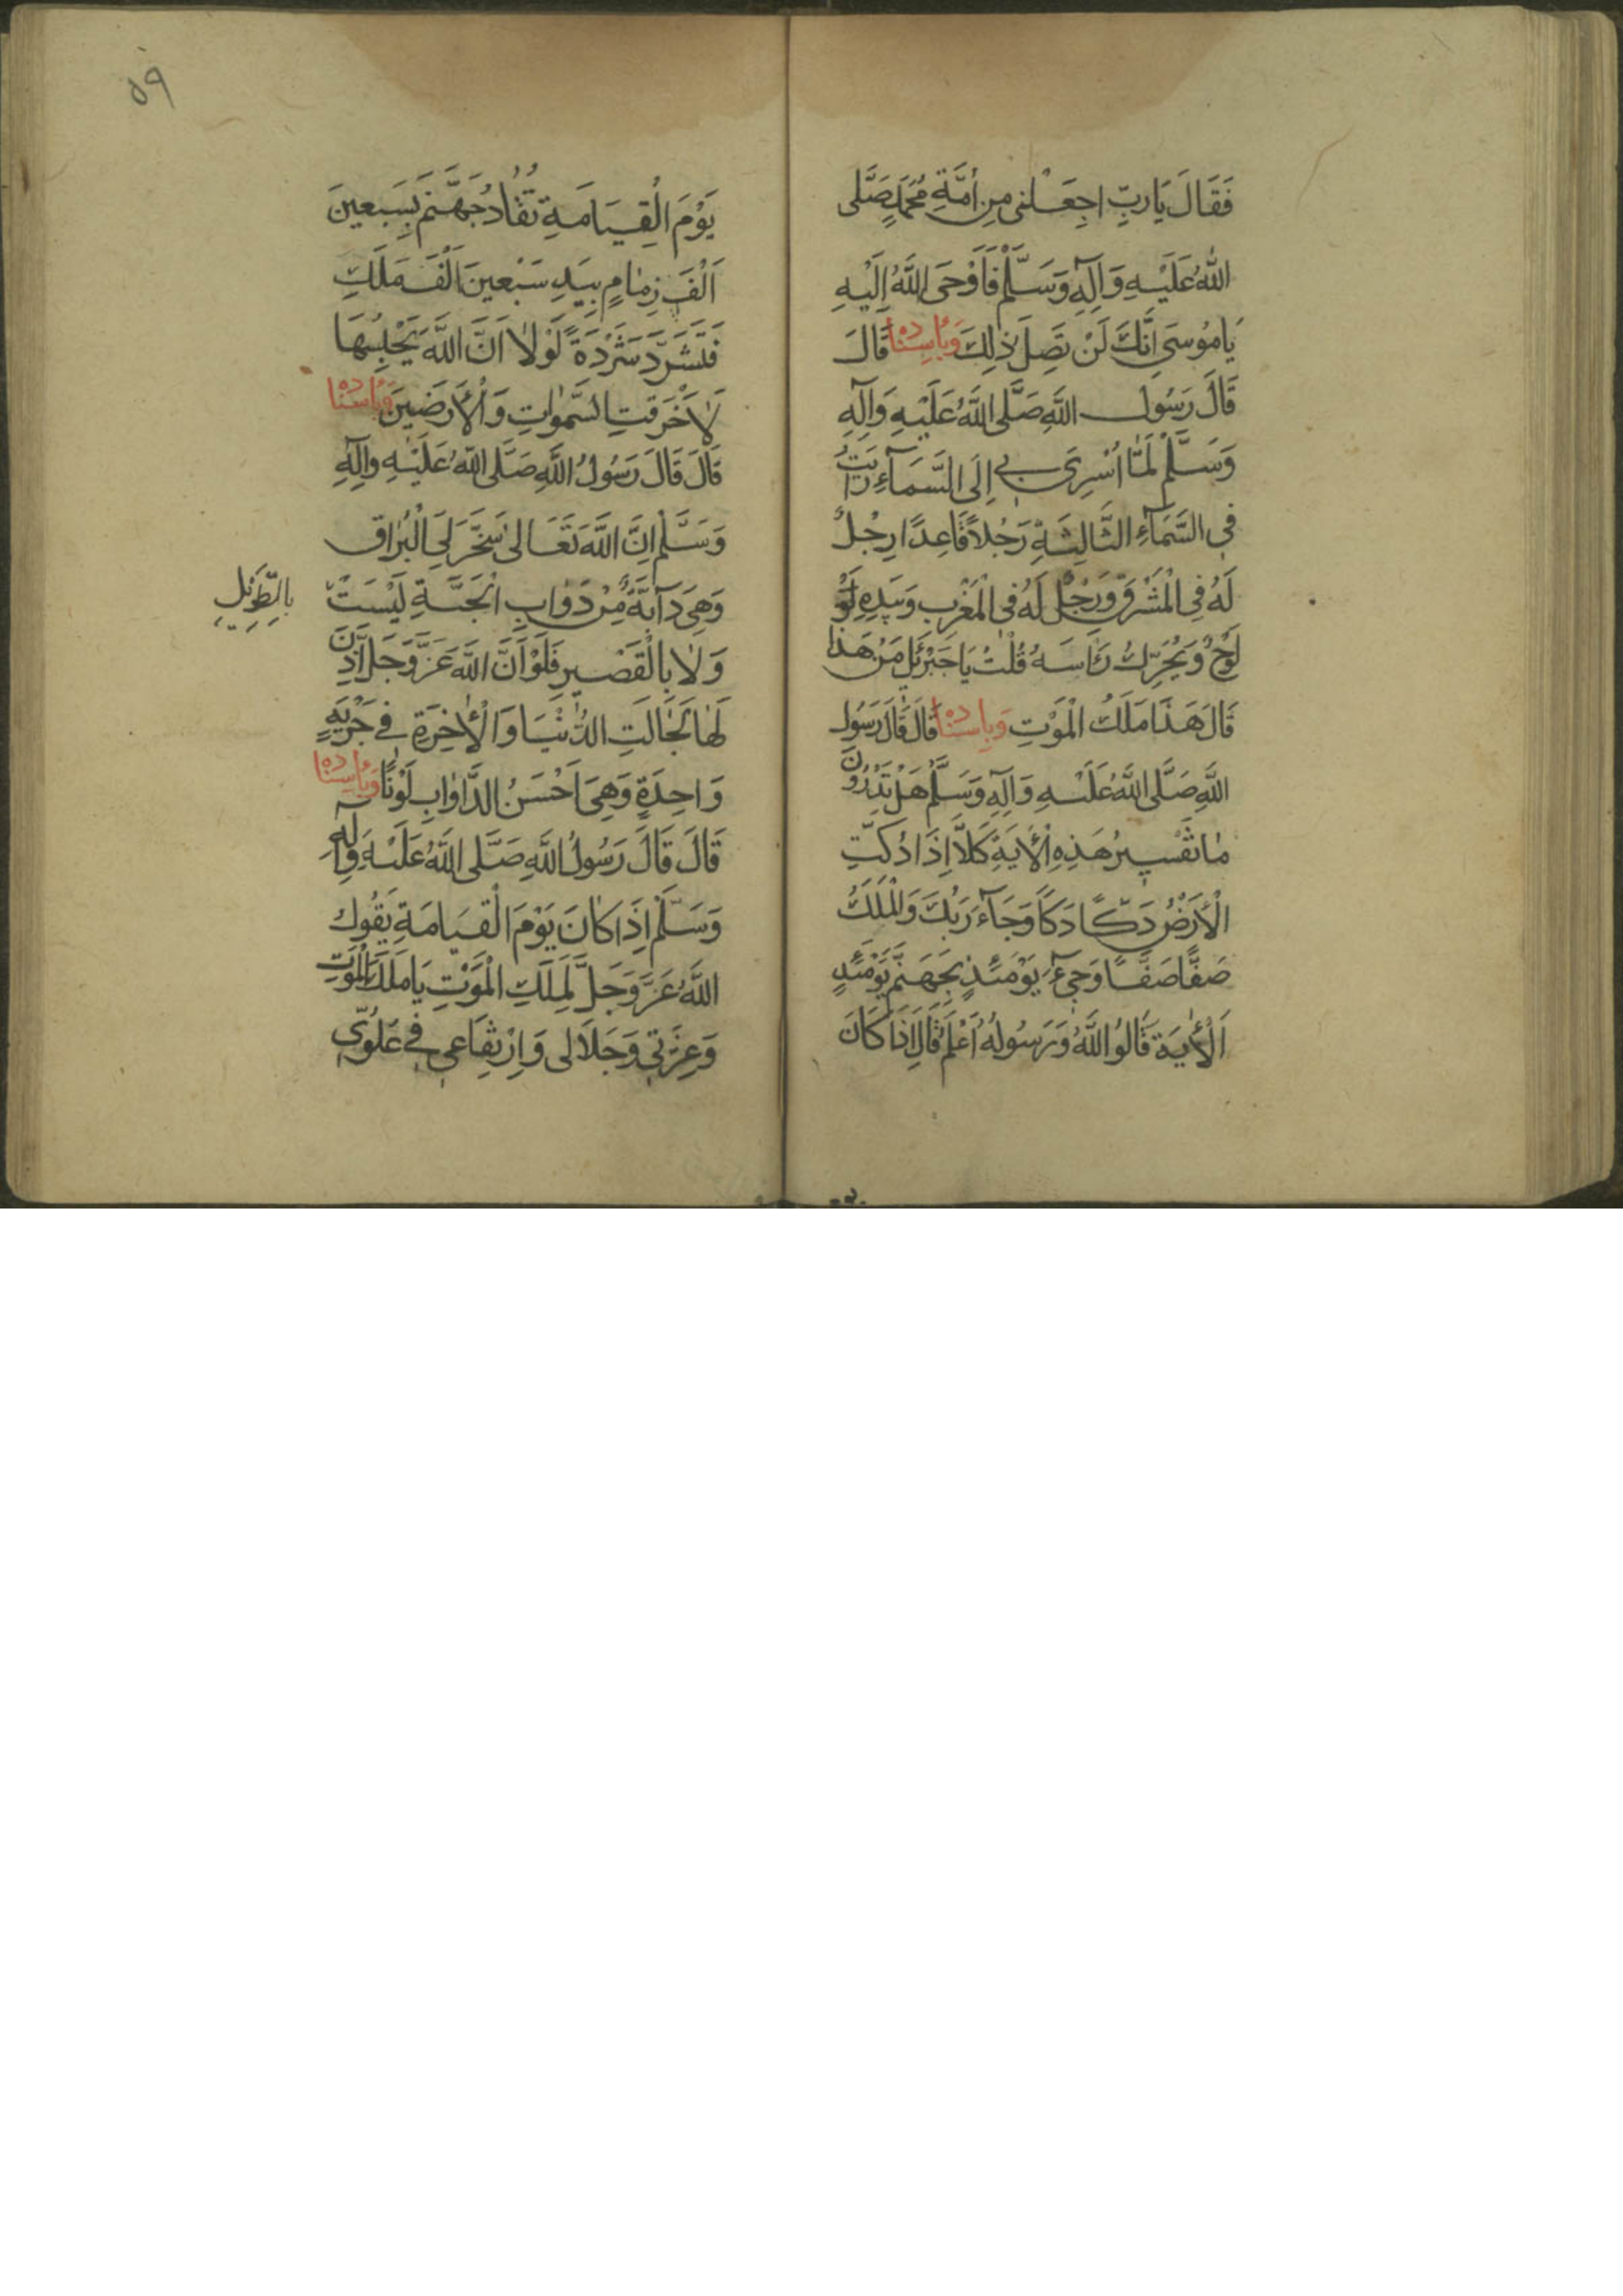 فَقَالَ يَا رَبِّ اجْعَلْنِى مِن اُمَّةِ مُحَمَّدٍ صَلَّى
اللهُ عَلَيْهِ وَآلِهِ وَسَلَّمْ فَاَوْحَى اللهُ اِلَيْهِ
يَا مُوسَى اِنَّكَ لَنْ تَصِلَ ذٰلِكَ وَبِاِسنَادِه قَالَ
قَالَ رَسُول اللهِ صَلَّى اللهُ عَلَيْهِ وَآلِهِ
وَسَلَّمْ لَمَّا اُسْرِىَ بِى اِلَى السَّمَآءِ رَاَيْتُ
فِى السَّمَآءِ الثَّالِثَةِ رَجُلاً قَاعِدًا رِجْلٌ
لَهُ فِى الْمَشْرِقِ وَرِجْلٌ لَهُ فِى الْمَغْرِبِ وَبِيَدِهِ لَوْ
لَوْحٌ وَيُحَرِّكُ رَاسَهُ قُلْتُ يَا جَبْرَئِيلُ مَنْ هَذَا
قَالَ هَذَا مَلَكُ الْمَوْتِ وَبِاِسنَادِه قَالَ قَالَ رَسُول
اللهِ صَلَّى اللهُ عَلَيْهِ وَآلِهِ وَسَلَّمْ هَلْ تَدْرُونَ
مٰا تَفْسِيرُ هَذِهِ الْاٰيَةِ كَلاَّ اِذَا دُكَّتِ
الْاَرْضُ دَكًّا دَكًّا وَجَآءَ رَبُّكَ وَالْمَلَكُ
صَفًّا صَفًّا وَجِىءَ يَوْمَئِذٍ بِجَهَنَّمَ يَوْمَئِذٍ
اَلْاٰيَة قَالُوا اللهُ وَرَسُولُهُ اَعْلَمُ قَالَ اِذَا كَانَ
٥٩
يَوْمَ الْقِيَامَةِ تُقَادُ جَهَنَّمُ بِسَبعِينَ
اَلْفَ زِمٰامٍ بِيَدِ سَبْعِينَ اَلْفَ مَلَكٍ
فَتَشَرَّدَ شَرْدَةً لَوْلاٰ اَنَّ اللهَ يَحْبِسُهَا
لَاَحْرَقَتِ السَّمٰوٰاتِ وَالْاَرَضِينَ وَبِاِسنَادِه
قَالَ قَالَ رَسُولُ اللهِ صَلَّى اللهُ عَلَيْهِ وَآلِهِ
وَسَلَّمْ اِنَّ اللهَ تَعَالىٰ سَخَّرَ لِىَ الْبُرَاق
وَهِىَ دَآبَّةٌ مِنْ دَوٰابِ الْجَنَّةِ لَيْسَتْ
بِالطَّوِيلِ
وَلاٰ بِالْقَصِيرِ فَلَوْ اَنَّ اللهَ عَزَّ وَجَلَّ اَذِنَ
لَهٰا لَجَالَتِ الدُّنْيَا وَالْاٰخِرَةِ فِى جَرْيَةٍ
وَاحِدَةٍ وَهِىَ اَحْسَنُ الدَّوٰابِ لَوْنًا وَبِاِسنَادِه
قَالَ قَالَ رَسُولُ اللهِ صَلَّى اللهُ عَلَيْهِ وَآلِهِ
وَسَلَّمْ اِذَا كَانَ يَوْمَ الْقِيَامَةِ يَقُولُ
اللهُ عَزَّ وَجَلَّ لِمَلَكِ الْمَوْتِ يَا مَلَكَ الْمَوْتِ
وَعِزَّتِى وَجَلاَلِى وَارْتِفَاعِى فِى عُلُوِّى